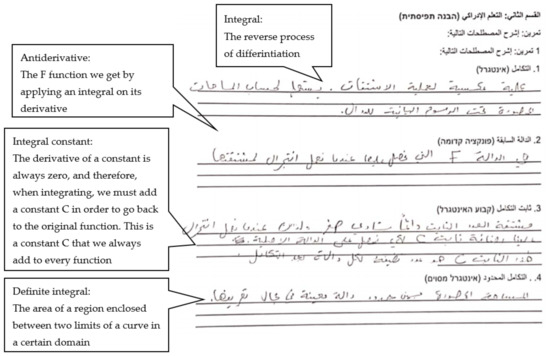 القسم الثاني: التعلم الإدراكي (הבנה תפיסתית)
تمرين: إشرح المصطلحات التالية:
1 تمرين: إشرح المصطلحات التالية:
Integral:
The reverse process
of differintiation
1. التكامل (אינטגרל)
عملية عكسية لعملية الاشتقاق. لحساب المساحات
تحت الرسوم البيانية للدوال.
Antiderivative:
The F function we get by
applying an integral on its
derivative
2. الدالة السابقة (פונקציה קדומה)
هي الدالة F التي نحصل عليها عندما نعمل انتجرال لمشتقتها
Integral constant:
The derivative of a constant is
always zero, and therefore,
when integrating, we must add
a constant C in order to go back
to the original function. This is
a constant C that we always
add to every function
3. ثابت التكامل (קבוע האינטגרל)
مشتقة العدد الثابت دائماً تساوي صفر ولذلك عندما نعمل انتجرال
علينا إضافة ثابت C لكي نحصل على الدالة الأصلية.
هذا الثابت C هو عدد نضيفه لكل دالة بعد التكامل.
Definite integral:
The area of a region enclosed
between two limits of a curve in
a certain domain
4. التكامل المحدود (אינטגרל מסוים)
المساحة المحصورة بين دالة معينة في مجال تعريفها.